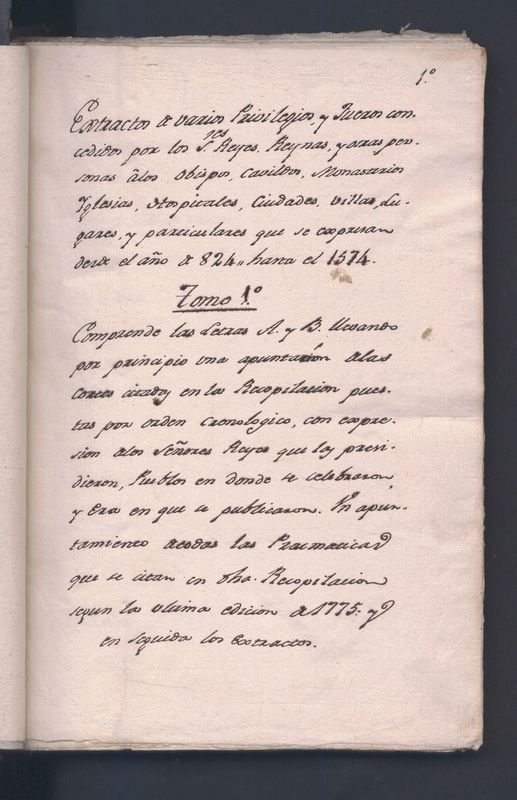 1.º
Extractos de varios Privilegios, y Fueros con-
cedidos por los S.res Reyes, Reynas, y otras per-
sonas âlos Obispos, Cavildos, Monasterios
Yglesias, Ospitales, Ciudades, Villas, Lu-
gares, y particulares que se expresan
desde el año de 824,, hasta el 1574.
Tomo 1.º
Comprende las Letras A. y B. llevando
por principio una apuntacion alas
Cortes citadas en la Recopilacion pues-
tas por orden cronologico, con expre-
sion alos Señores Reyes que las presi-
dieron, Pueblos en donde se celebraron
y Era en que se publicaron. Un apun-
tamiento atodas las Pracmaticas
que se citan en dha. Recopilacion
segun la ultima edicion de 1775: y
en seguida los extractos.